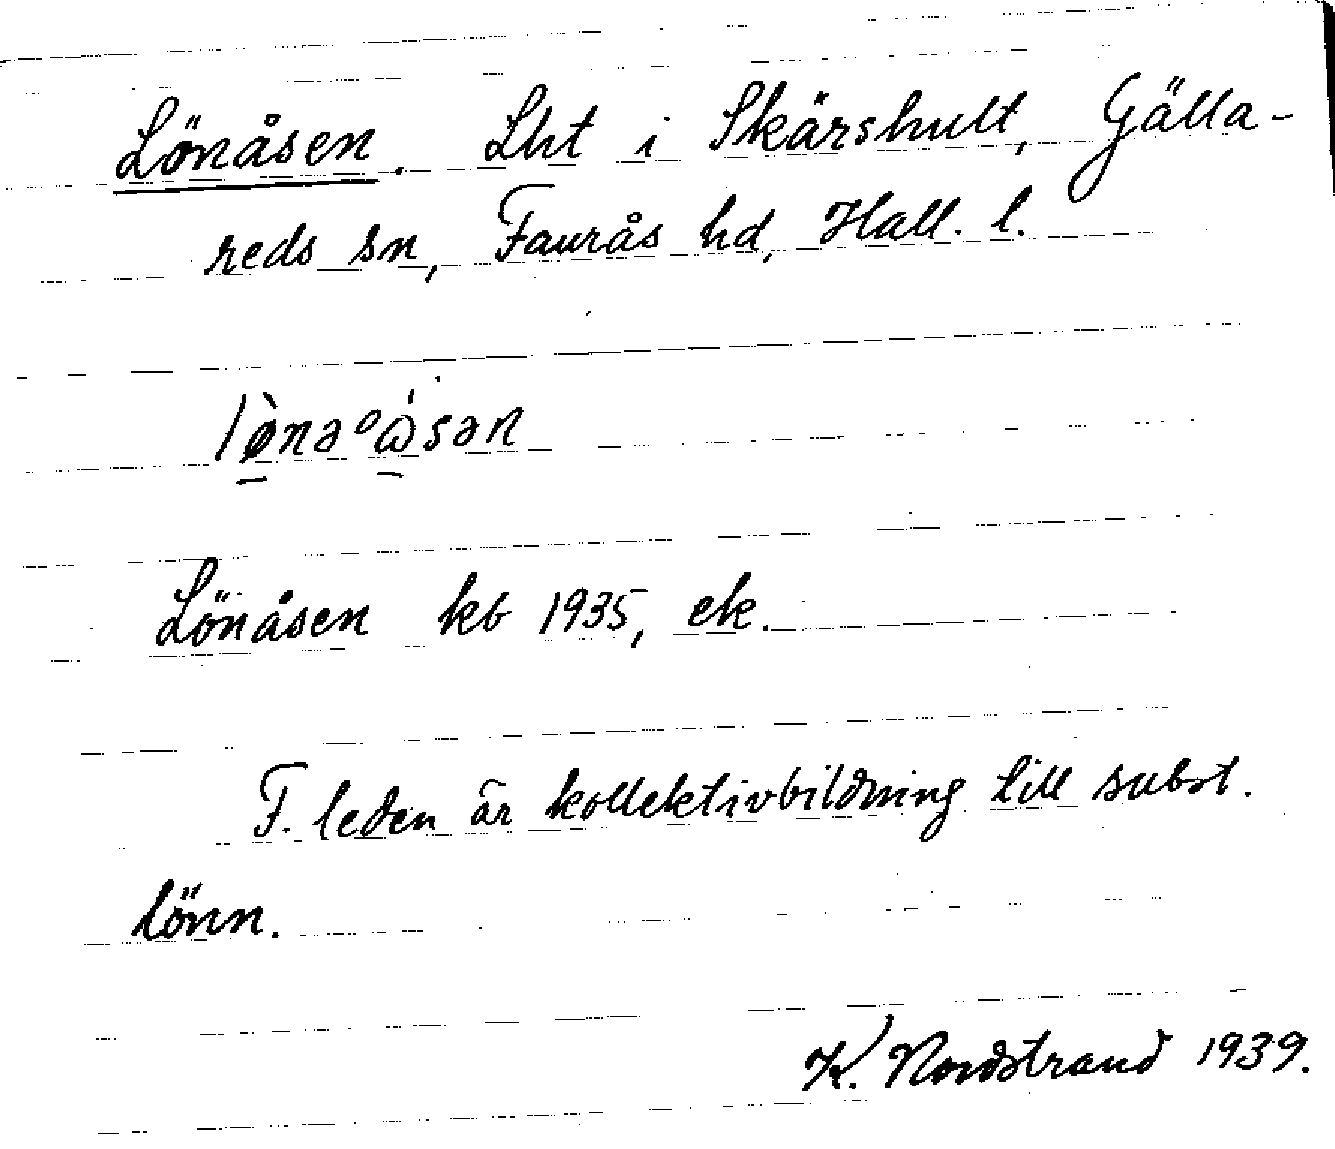 Lönåsen. Lht i Skärshult, Gälla-
reds sn, Faurås hd, Hall. l.
lø̀nəᵒώsən
Lönåsen kb 1935, ek.
F. leden är kollektivbildning till subst.
lönn.
K. Nordstrand 1939.